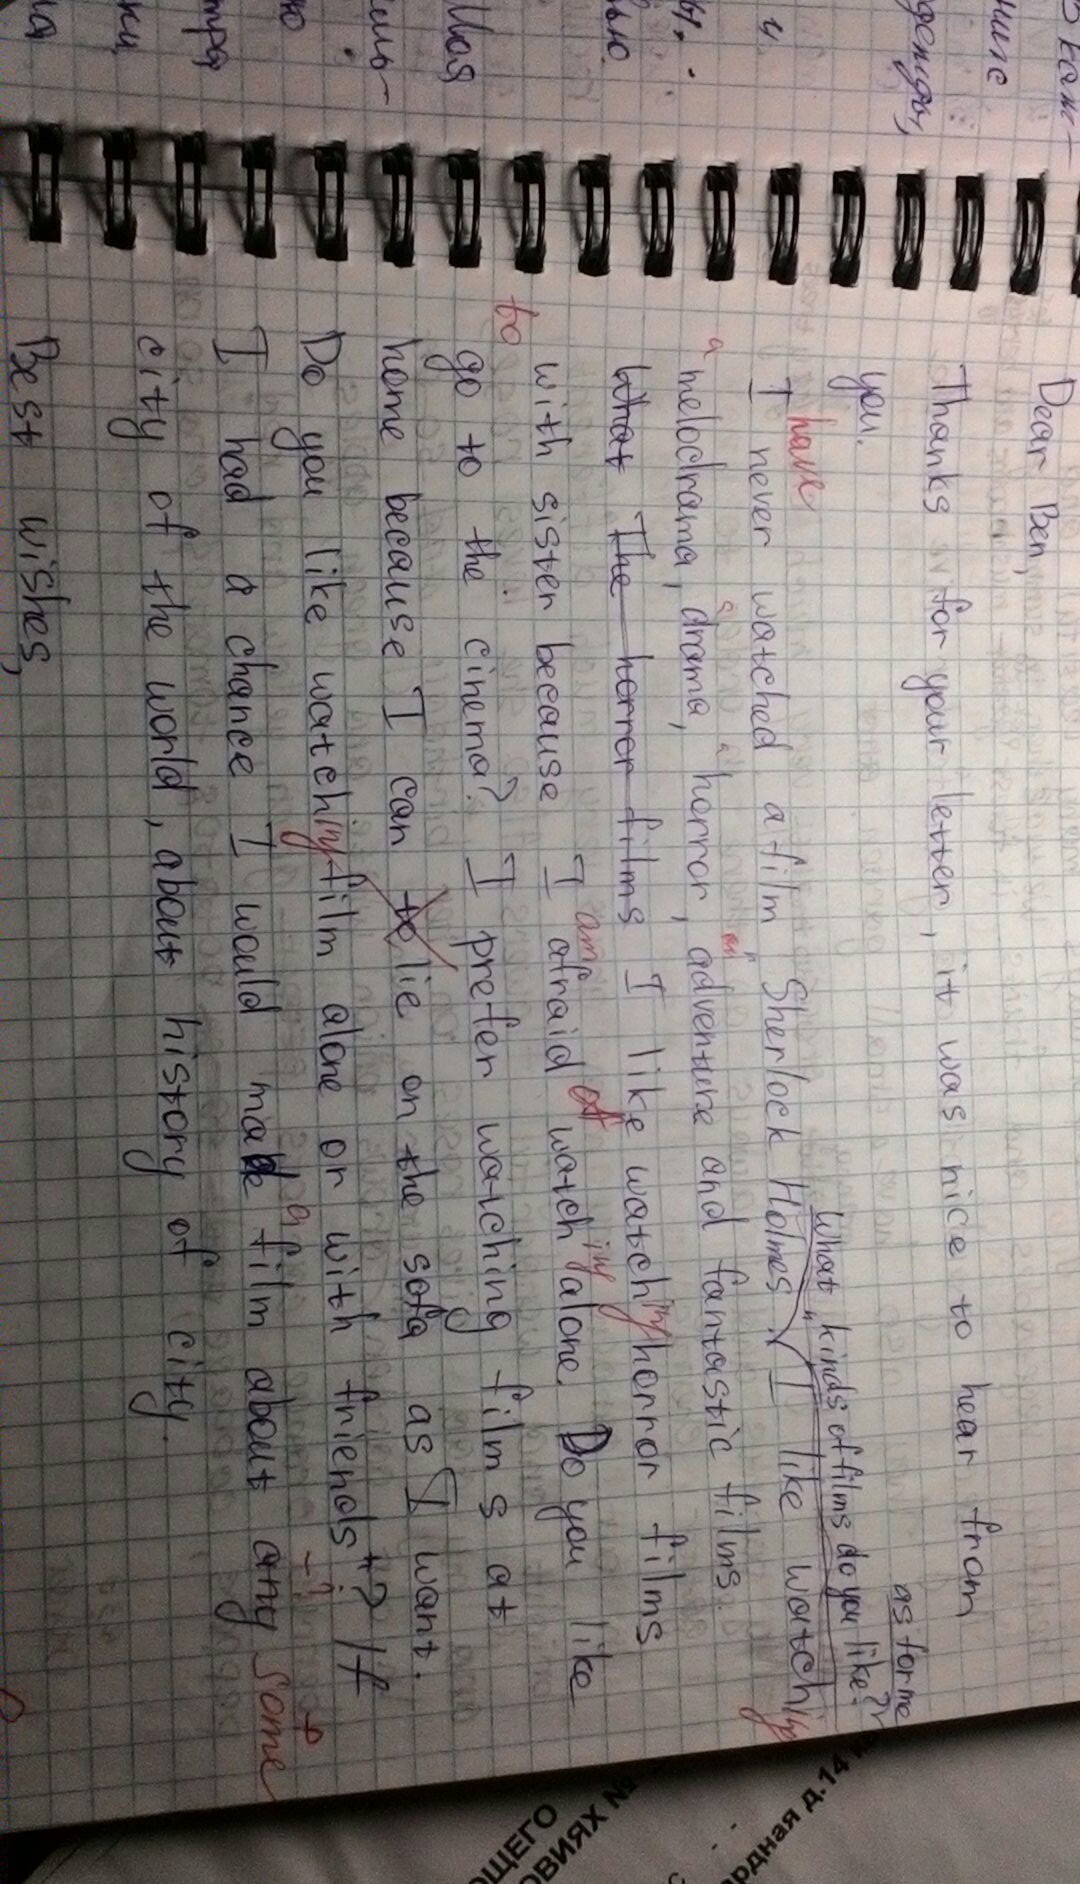 Dear Ben,
Thanks for your letter, it was nice to hear from
you.
as for me
What kinds of films do you like?
have
I never watched a film Sherlock Holmes. I like watching
a melodrama, drama, horror, adventure and fantastic films.
What The horror films I like watching horror films
with sister because I am afraid of watching alone. Do you like
to
go to the cinema? I prefer watching films at
home because I can to lie on the sofa as I want.
Do you like watching film alone or with friends? If
I had a chance I would make a film about any some
city of the world, about history of city.
Best wishes,
ОЩЕГО
ОВИЯХ №
рдная д.14